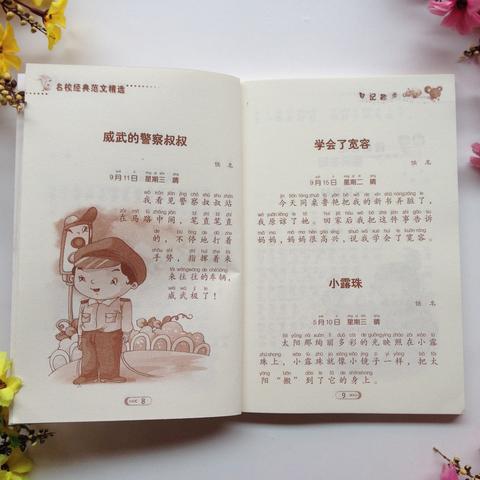 名校经典范文精选
威武的警察叔叔
佚名
9月11日 星期三 晴
我看见警察叔叔站
在马路中间，笔直笔直
的，不停地打着
手势，指挥着来
来往往的车辆，
威武极了！
8
日记起步
学会了宽容
佚名
9月15日 星期二 晴
今天同桌鲁艳把我的新书弄脏了，
我原谅了她。回家后我把这件事告诉
妈妈，妈妈很高兴，说我学会了宽容。
小露珠
佚名
5月10日 星期三 晴
太阳那绚丽多彩的光映照在小露
珠上，小露珠就像小镜子一样，把太
阳“搬”到了它的身上。
9